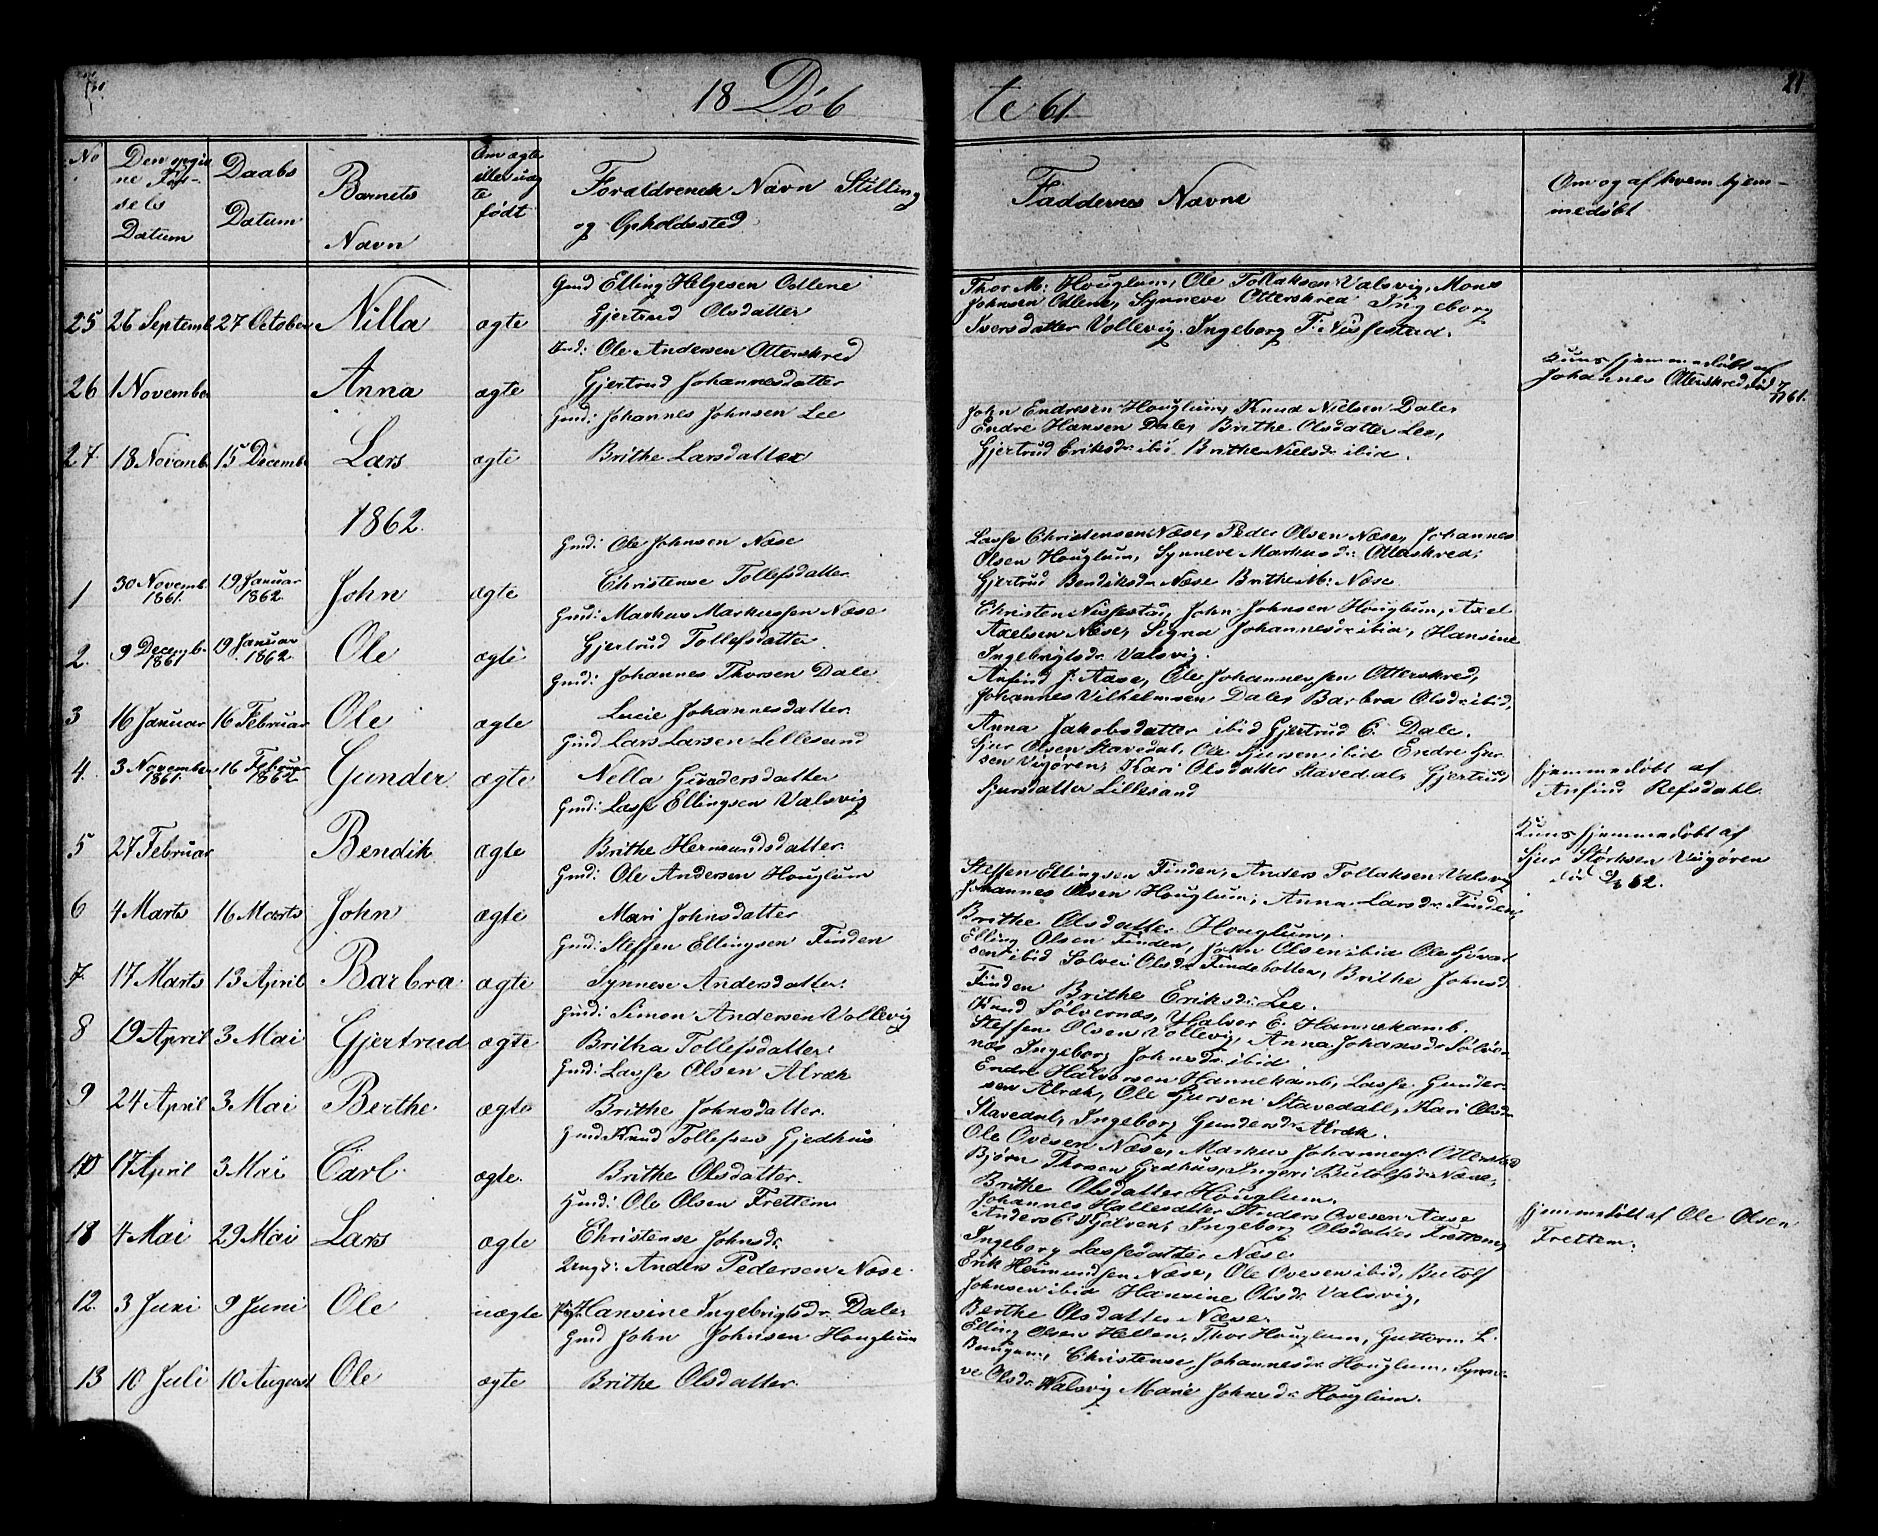 18 Døb
te 61.
21
No
Den opgivne Fødsels Datum
Daabs Datum
Barnets Navn
Om ægte eller uægte født
Forældrenes Navn Stilling og Opholdssted
Faddernes Navne
Om og af hvem hjemmedøbt
25 26 Septemb 27 October Nilla ægte
Gmd Elling Helgesen Odlene
Gjertrud Olsdatter
Thor M: Houglum, Ole Tollaksen Valsvig, Mons
Johnsen Odlene, Synneve Otterskred Ingeborg
Iversdatter Vollevig. Ingeborg T: Nissestad.
26 1 November Anna ægte
Gmd: Ole Andersen Otterskred
Gjertrud Johannesdatter
Kuns hjemmedøbt af
Johannes Otterskred død 7/11 61.
27 18 Novemb. 15 Decemb Lars ægte
Gmd: Johannes Johnsen Lee
Brithe Larsdatter
John Endresen Houglum, Knud Nielsen Dale,
Endre Hansen Dale, Brithe Olsdatter Lee,
Gjertrud Eriksdr ibid Brithe Nielsdr ibid.
1862.
1 30 Novemb. 1861. 19 Januar 1862 John ægte
Gmd: Ole Johnsen Næse
Christense Tollefsdatter
Lasse Christensen Næse, Peder Olsen Næse, Johannes
Olsen Houglum, Synneve Markusdr: Otterskred,
Gjertrud Bendiksdr Næse Brithe M: Næse.
2. 9 Decemb. 1861 19 Januar 1862 Ole ægte
Gmd: Markus Markussen Næse
Gjertrud Tollefsdatter.
Christen Nissestad, John Johnsen Houglum, Axel
Axelsen Næse, Signa Johannesdr ibid, Hansine
Ingebrigtsdr Valsvig.
3 16 Januar 16 Februar Ole ægte
Gmd: Johannes Thorsen Dale
Lucie Johannesdatter.
Anfind J: Aase, Ole Johannessen Otterskred,
Johannes Vilhelmsen Dale, Barbra Olsdr ibid,
Anna Jakobsdatter ibid Gjertrud C. Dale.
4. 3 November 1861. 16 Februar 1862 Gunder ægte
Gmd Lars Larsen Lillesand
Nella Gundersdatter
Sjur Olsen Stavedal, Ole Sjursen ibid Endre Sjur
sen Vigøren, Kari Olsdatter Stavedal, Gjertrud
Sjursdatter Lillesand
Hjemmedøbt af
Anfind Refsdahl.
5 27 Februar Bendik ægte
Gmd: Lasse Ellingsen Valsvig
Brithe Hermundsdatter
Kuns hjemmedøbt af
Sjur Størksen Vigøren
død 2/3 62.
6 4 Marts 16 Marts John ægte
Gmd: Ole Andersen Houglum
Mari Johnsdatter
Steffen Ellingsen Finden, Anders Tollaksen Valsvig
Johannes Olsen Houglum, Anna Larsdr Finden,
Brithe Olsdatter Houglum,
7 17 Marts 13 April Barbra ægte
Gmd: Steffen Ellingsen Finden
Synneve Andersdatter
Elling Olsen Finden, John Olsen ibid Ole Havor
sen ibid Sølvei Olsdr Findebotten, Brithe Johnsd.
Finden Brithe Eriksdr: Lee.
8 19 April 3 Mai Gjertrud ægte
Gmd: Simon Andersen Vollevig
Britha Tollefsdatter
Knud Sølvernæs, Halvor E. Hannekamb.
Steffen Olsen Vollevig, Anna Johansdr Sølver
næs Ingeborg Johnsdr ibid
9 24 April 3 Mai Berthe ægte
Gmd: Lasse Olsen Alræk
Brithe Johnsdatter.
Endre Halvorsen Hannekamb, Lasse Gunder
sen Alræk, Ole Sjursen Stavedahl, Kari Olsdr
Stavedal, Ingeborg Gundersdr Alræk.
10 17 April 3 Mai Carl ægte.
Gmd Knud Tollefsen Gjedhus
Brithe Olsdatter.
Ole Ovesen Næse, Markus Johannes: Otterskred
Bjørn Thorsen Gjedhus, Ingeri Butolfsdr Næse,
Brithe Olsdatter Houglum.
11 4 Mai 29 Mai Lars ægte
Hmd: Ole Olsen Frettem
Christense Johnsdr
Johannes Hallesætter Anders Ovesen Aase
Anders Skjelven, Ingeborg Olsdatter Frettem,
Ingeborg Lassedatter Næse.
Hjemmedøbt af Ole Olsen
Frettem.
12. 3 Juni 9 Juni Ole uægte
Ungk: Anders Pedersen Næse.
Pige Hansine Ingebrigtsdr Dale,
Erik Hermundsen Næse, Ole Ovesen ibid, Butolf
Johnsen ibid Hansine Olsdr Valsvig,
Berthe Olsdatter Næse.
13 10 Juli 10 August Ole ægte
Gmd John Johnsen Houglum
Brithe Olsdatter.
Elling Olsen Hellen, Thor Houglum, Guttorm L.
Baugen, Christense Johannesdr Houglum, Synne
ve Olsdr Valsvig Marie Johnsdr Houglum.